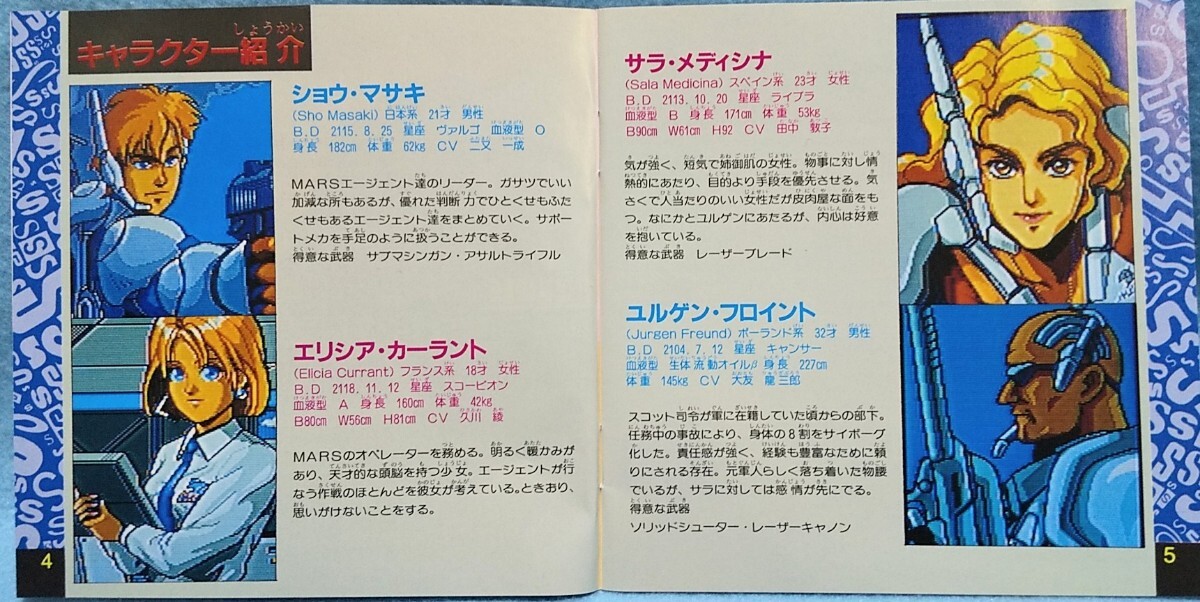 キャラクター紹介
しょうかい
ショウ・マサキ
(Sho Masaki) 日本系 21才 男性
B.D 2115.8.25 星座 ヴァルゴ 血液型 O
身長 182cm 体重 62kg CV 二又 一成
MARSエージェント達のリーダー。ガサツでいい
加減な所もあるが、優れた判断力でひとくせもふた
くせもあるエージェント達をまとめていく。サポー
トメカを手足のように扱うことができる。
得意な武器 サブマシンガン・アサルトライフル
エリシア・カーラント
(Elicia Currant) フランス系 18才 女性
B.D 2118.11.12 星座 スコーピオン
血液型 A 身長 160cm 体重 42kg
B80cm W56cm H81cm CV 久川 綾
MARSのオペレーターを務める。明るく暖かみが
あり、天才的な頭脳を持つ少女。エージェントが行
なう作戦のほとんどを彼女が考えている。ときおり、
思いがけないことをする。
4
サラ・メディシナ
(Sala Medicina) スペイン系 23才 女性
B.D 2113.10.20 星座 ライブラ
血液型 B 身長 171cm 体重 53kg
B90cm W61cm H92 CV 田中 敦子
気が強く、短気で姉御肌の女性。物事に対し情
熱的にあたり、目的より手段を優先させる。気
さくで人当たりのいい女性だが皮肉屋な面をも
つ。なにかとユルゲンにあたるが、内心は好意
を抱いている。
得意な武器 レーザーブレード
ユルゲン・フロイント
(Jurgen Freund) ポーランド系 32才 男性
B.D 2104.7.12 星座 キャンサー
血液型 生体流動オイルβ 身長 227cm
体重 145kg CV 大友 龍三郎
スコット司令が軍に在籍していた頃からの部下。
任務中の事故により、身体の8割をサイボーグ
化した。責任感が強く、経験も豊富なために頼
りにされる存在。元軍人らしく落ち着いた物腰
でいるが、サラに対しては感情が先にでる。
得意な武器
ソリッドシューター・レーザーキャノン
5